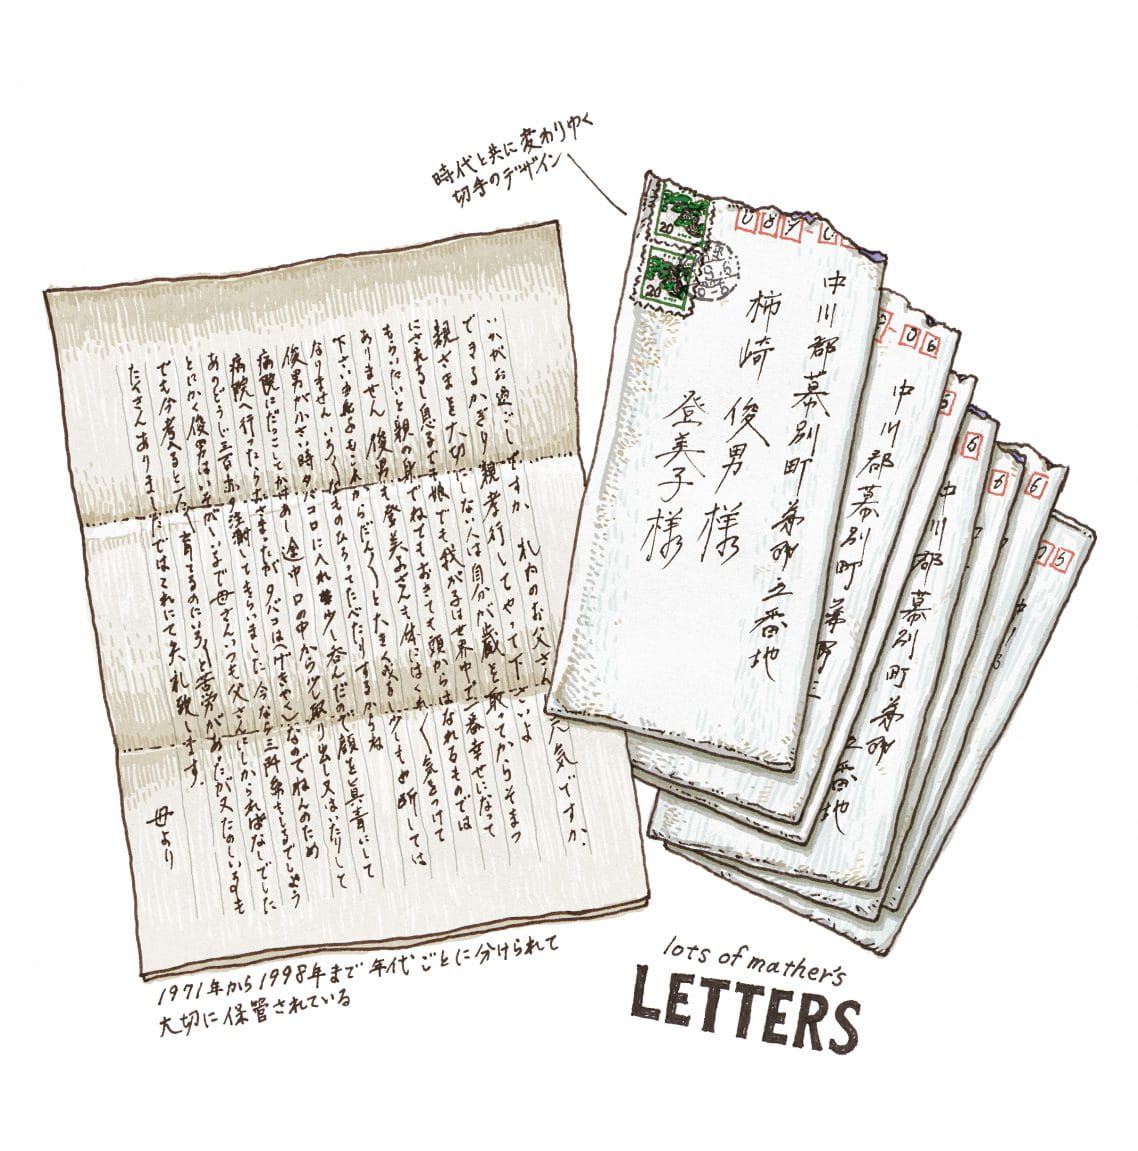 時代と共に変わりゆく
切手のデザイン
いかがお過ごしですか 札内のお父さ 元気ですか、
できるかぎり親孝行してやって下さいよ
親さまを大切にしない人は自分が歳を取ってからそまつ
にされるし息子でも娘でも我が子は世界中で一番幸せになって
もらいたいと親の身でねてもおきても頭からはなれるものでは
ありません 俊男も登美子さんも体にはくれ〲気をつけて
下さい これからだん〱と大きく成る少しもゆ断しては
なりません いろ〱なものひろってたべたりするからね
俊男が小さい時タバコ口に入れ少し呑んだので顔を真青にして
病院にだっことかけあし途中口の中から少し取り出し又はいたりして
病院へ行ったらおさまったがタバコはげきやくなのでねんのため
注射してもらいました 今なら とるでしょう
とにかく俊男はいそがしい子で母さんいつも父さんにしかられぱなしでした
でも今考へると 育てるのにいろ〱と苦労があったが又たのしい事も
たくさんありました ではこれにて失礼致します。
母より
20
20
中川郡幕別町 番地
柿崎 俊男 様
登美子 様
中川郡幕別町
0 6
中川郡幕別町 番地
6
6
6
5
1971年から1998年まで年代ごとに分けられて
大切に保管されている
lots of mather's
LETTERS